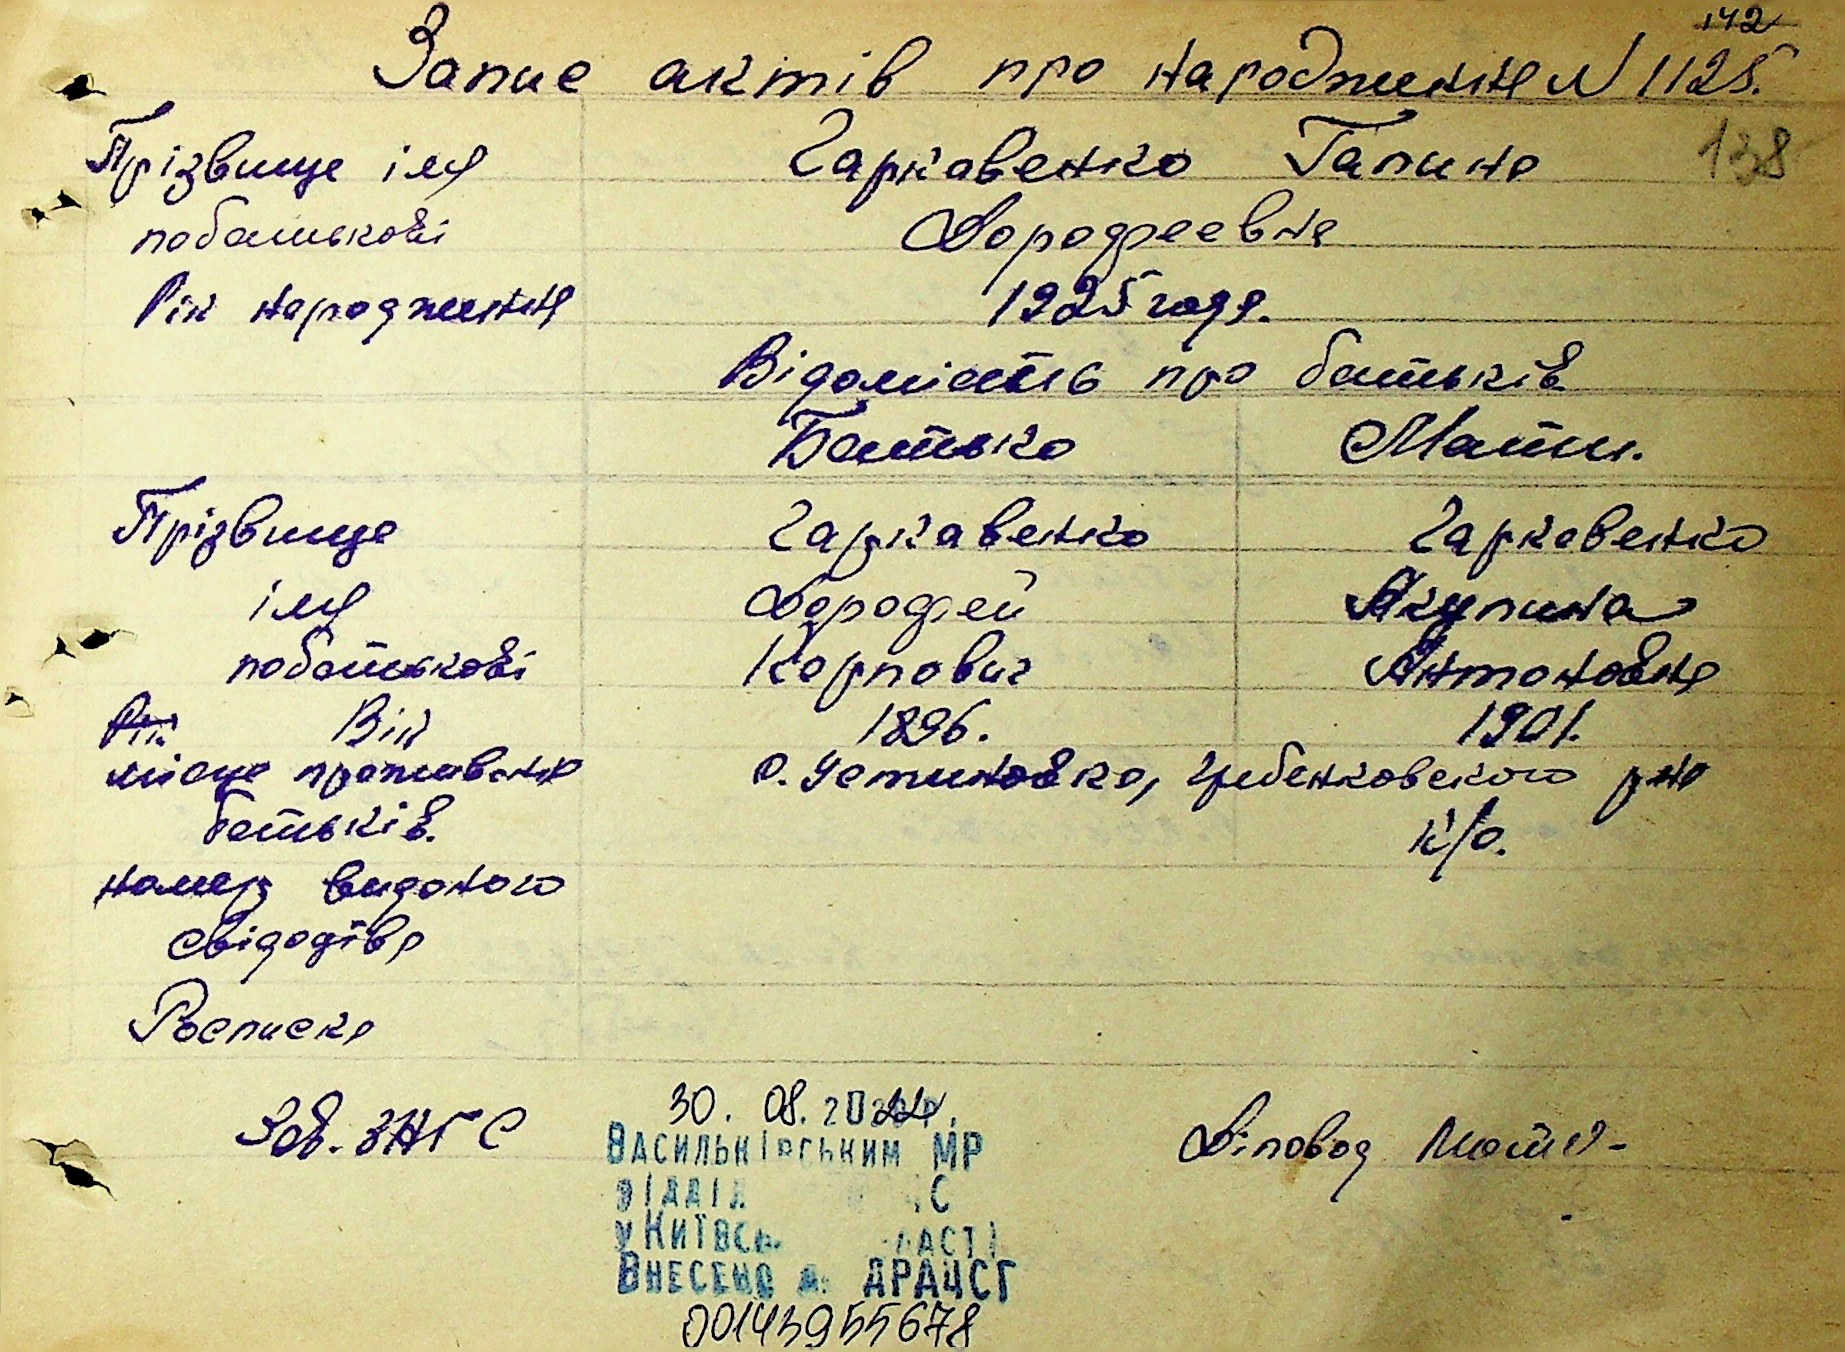 142
Запис актів про народження N 1125.
138
Прізвище імя Гаркавенко Галина
побатькові Дорофеевна
Рік народження 1925 года.
Відомість про батьків
Батько Мати.
Прізвище Гаркавенко Гаркавенко
імя Дорофей Акулина
побатькові Карпович Антоновна
Рік Вік 1896. 1901.
місце проживання с. Устиновка, Гребенковского р-на
батьків. К/о.
номер виданого
свідоцтва
Росписка
Зав. ЗАГС Діловод
30. 08. 2022р.
Васильківським МР
відділ С
у Київс ласті
Внесено д ДРАЦСГ
00143955678